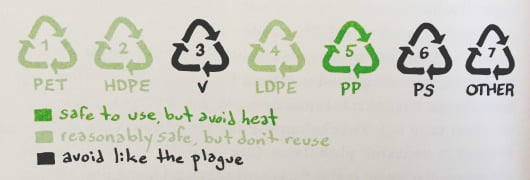 1 2 3 4 5 6 7
PET HDPE V LDPE PP PS OTHER
safe to use, but avoid heat
reasonably safe, but don't reuse
avoid like the plague